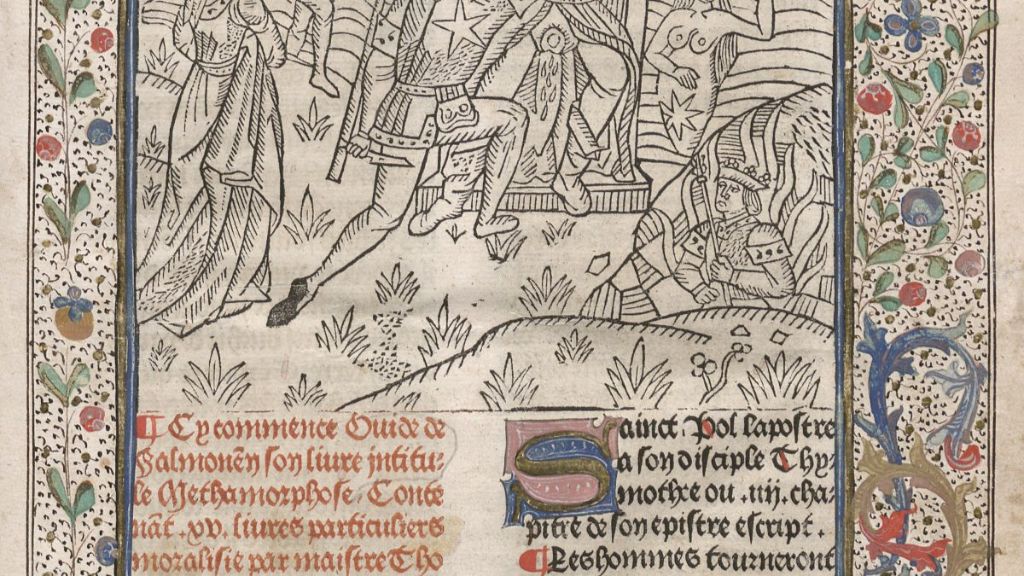 ¶ Cy commence Ouide de
Salmonen son liure intitu-
le Methamorphose, Conte
nãt .xv. liures particuliers
moralisie par maistre Tho
Sainct Pol lapostre
a son disciple Thy-
mothee ou .iiij. cha-
pitre de son epistre escript.
¶ Les hommes tourneront